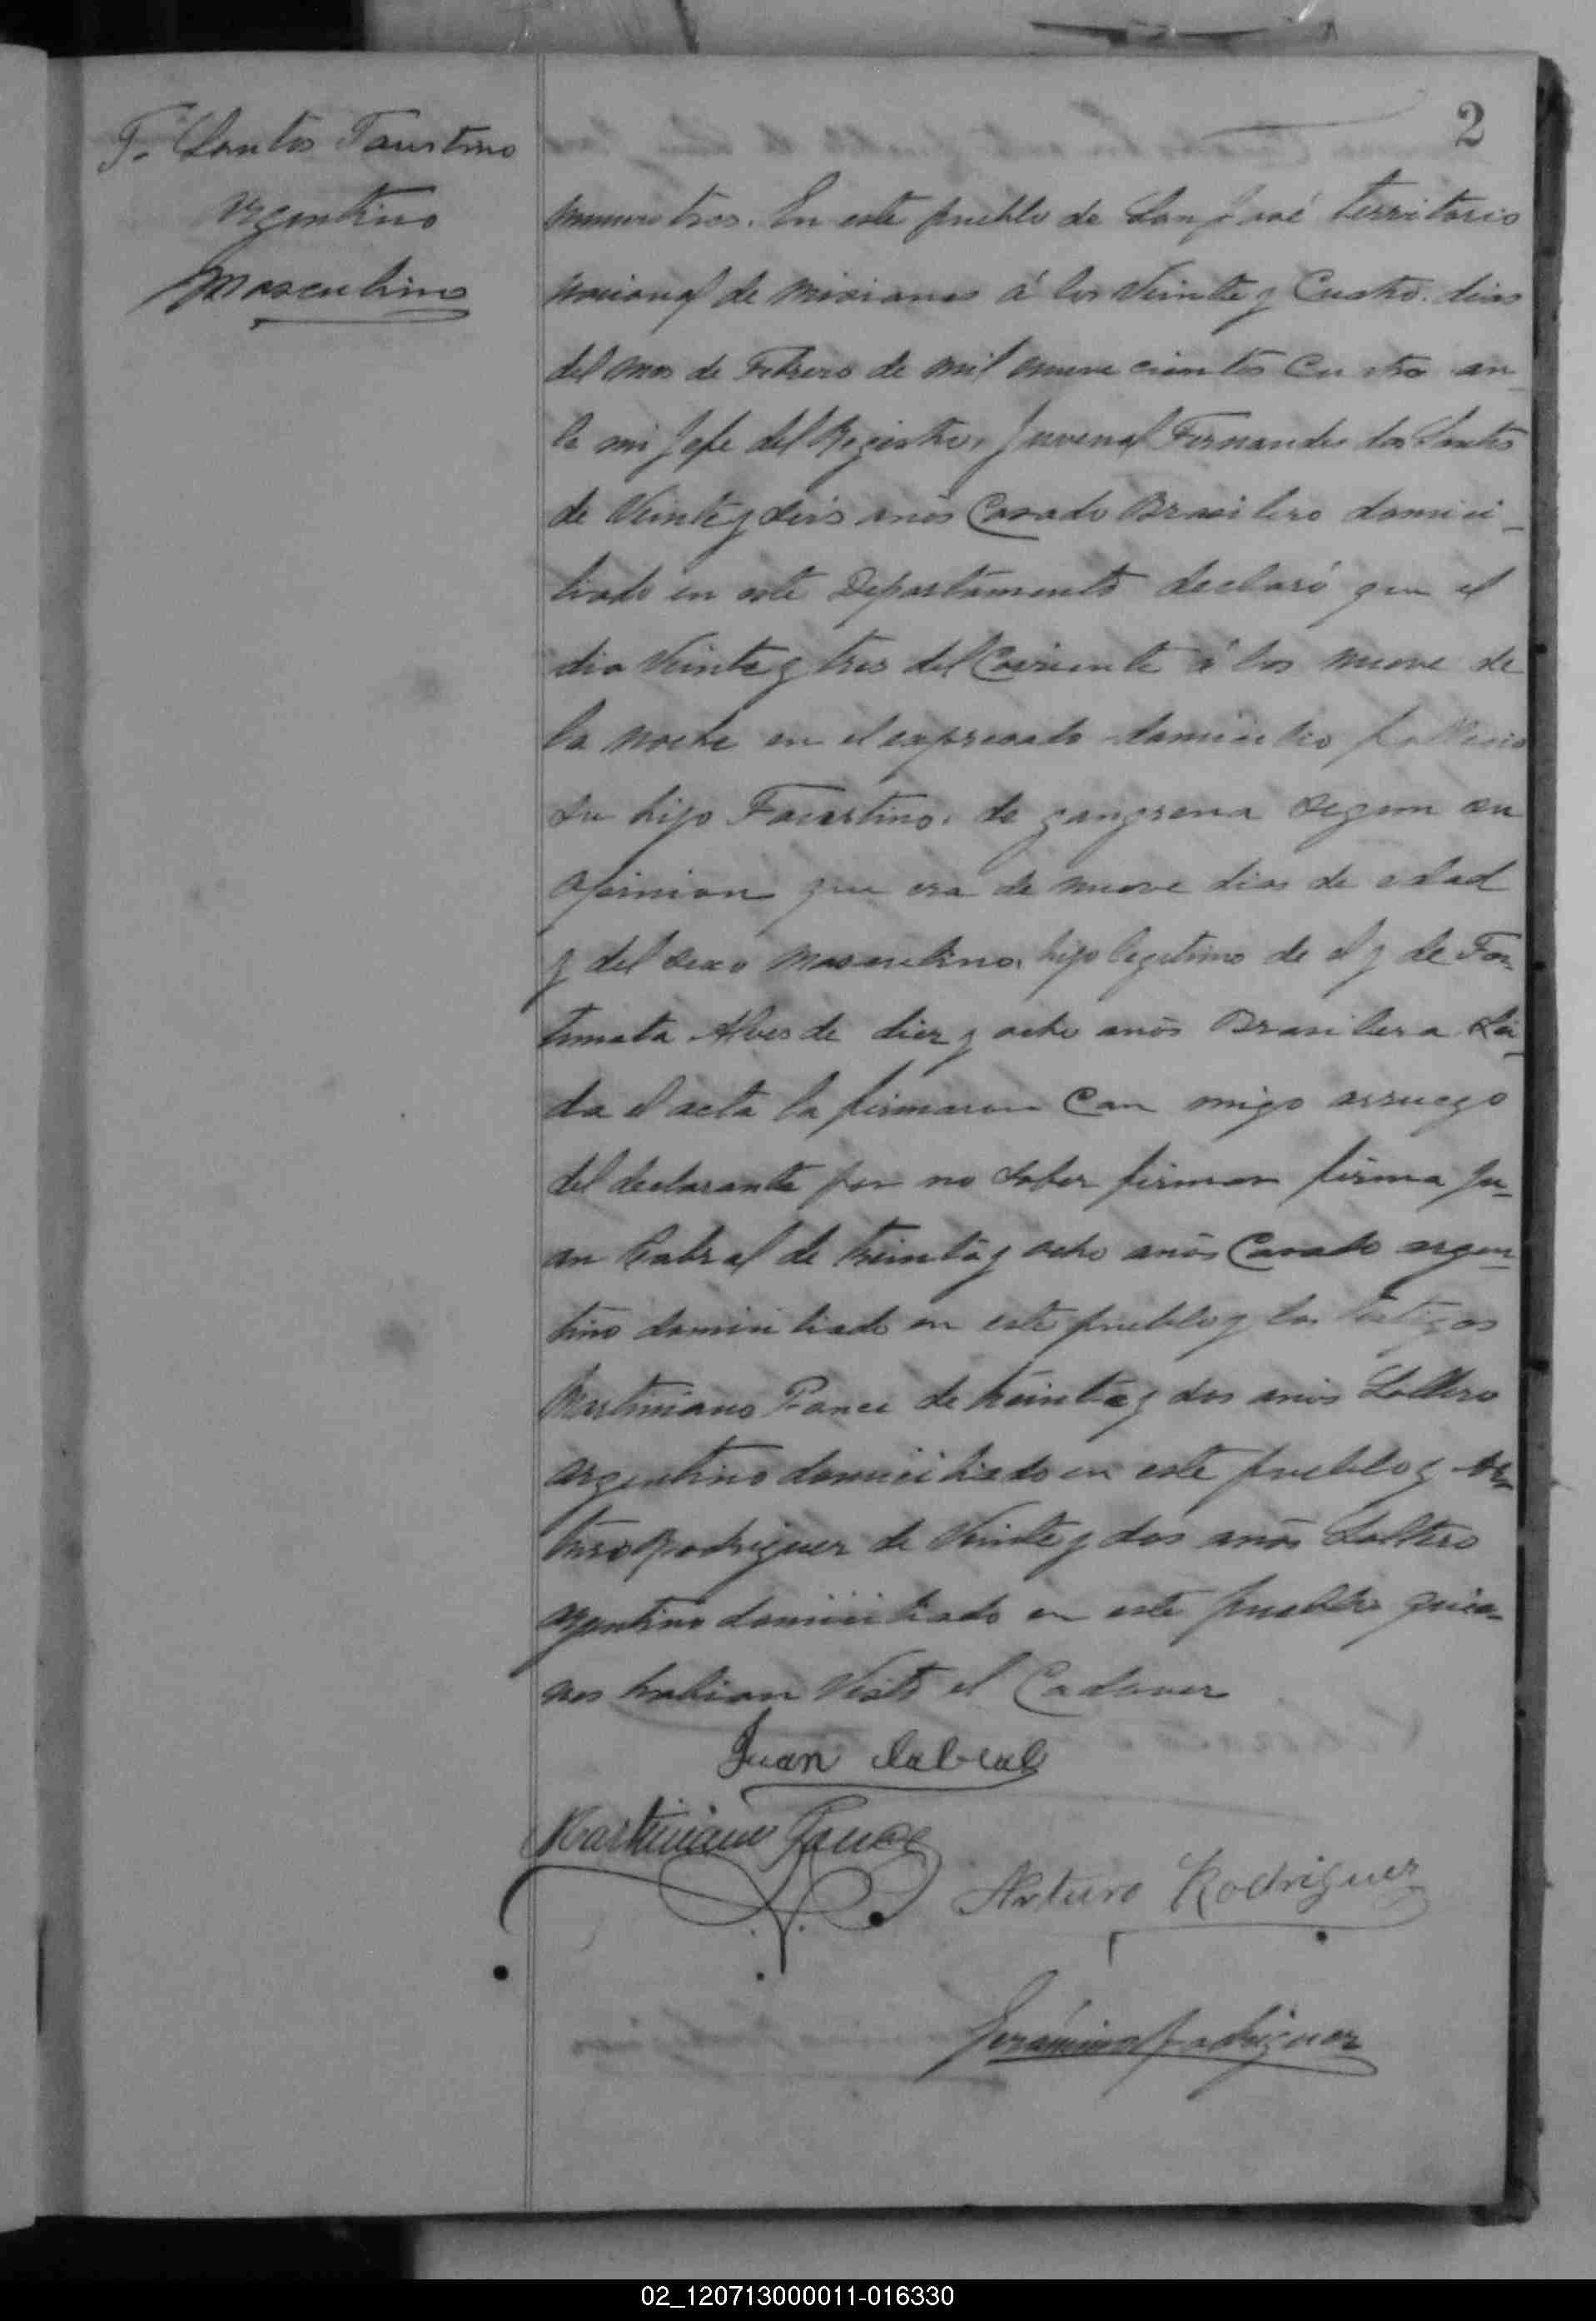 2
F. Santos Faustino
Argentino
Masculino
Numero tres. En este pueblo de San José territorio
nacional de Misiones á los Veinte y Cuatro. dias
del mes de Febrero de mil nueve cientos Cuatro an-
te mi Jefe del Registro, Juvenal Fernandes dos Santos
de Veinte y seis anõs Casado Brasilero domici-
liado en este Departamento declaró que el
dia Veinte y tres del Corriente á las nueve de
la noche en el expresado domicilio fallecio
su hijo Faustino. de gangrena segun su
opinion que era de nueve dias de edad
y del sexo masculino, hijo legitimo de el y de For-
tunata Alves de diez y ocho anõs Brasilera Lei-
da el acta la firmaron Con migo arruego
del declarante por no saber firmar firma Ju-
an Cabral de treinta y ocho anõs Casado argen-
tino domiciliado en este pueblo y los testigos
Martiniano Ponce de treinta y dos anõs Soltero
argentino domiciliado en este pueblo y Ar-
turo Rodriguez de Veinte y dos anõs Soltero
argentino domiciliado en este pueblo quie-
nes habian Visto el Cadaver
Juan Cabral
Martiniano Ponce
Arturo Rodriguez
Gerónimo Rodriguez
02_120713000011-016330